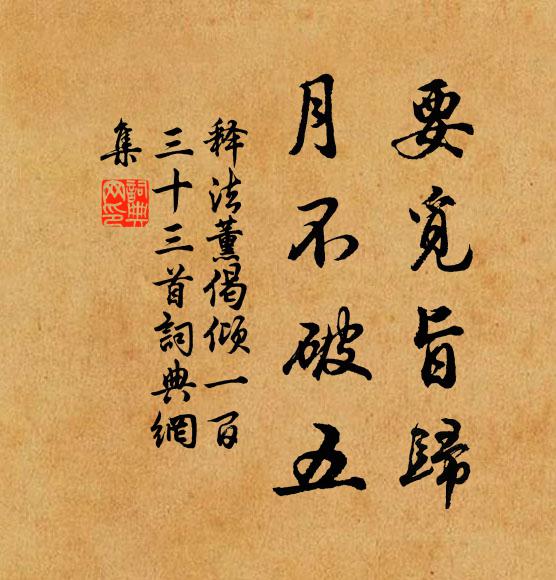 要覓旨歸
月不破五
释法薰偈傾一百
三十三首詞典網
集
詞典网印